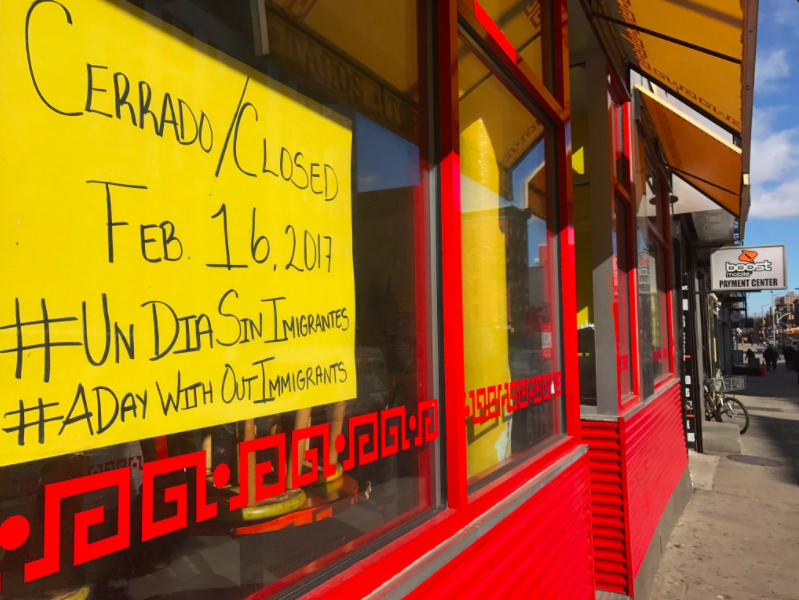 CERRADO/CLOSED
FEB. 16, 2017
#UN DIA SIN IMIGRANTES
#A DAY WITH OUT IMMIGRANTS
boost
mobile
PAYMENT CENTER